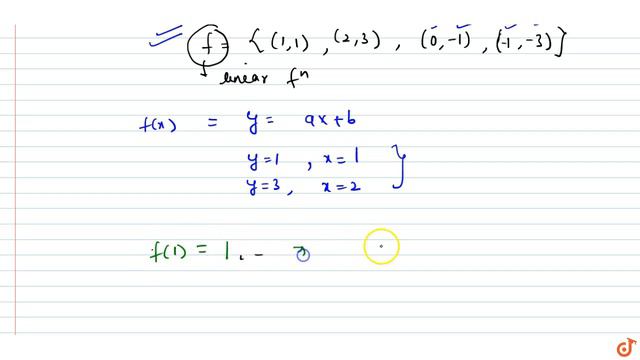 f = { (1,1) , (2,3) , (0,-1) , (-1,-3) }
linear fⁿ
f(x) = y = ax+b
y=1 , x=1
y=3, x=2
f(1) = 1, -